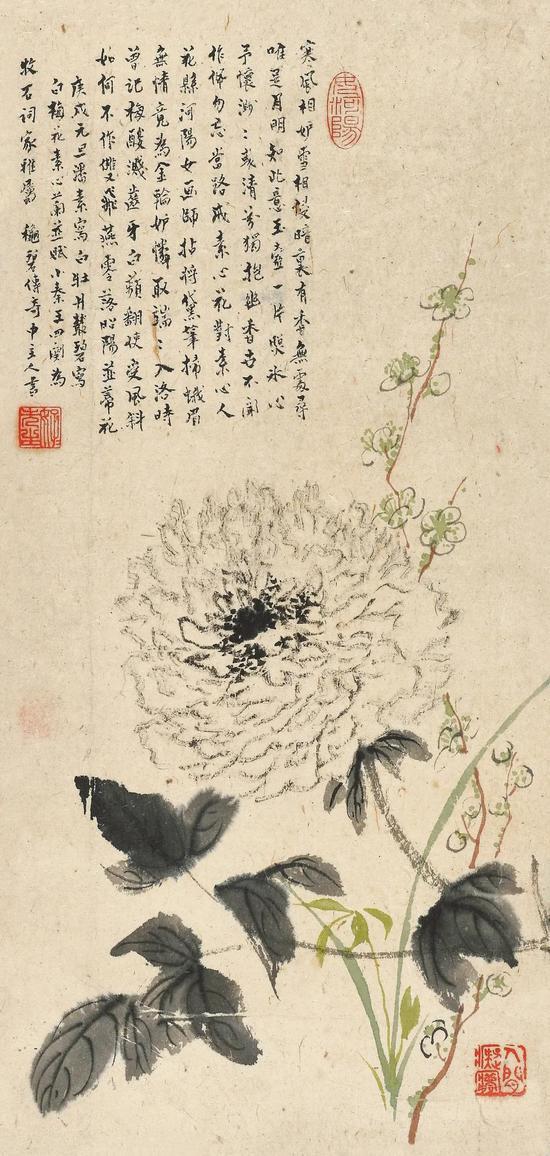 寒風相妒雪相侵暗裏有香無處尋
唯是月明知此意玉壺一片照冰心
予懷渺渺或清芬獨抱幽香世不聞
作佩勿忘當路戒素心花對素心人
花縣河陽女畫師拈將黛筆掃蛾眉
無情竟為金輪妒憐取端端入洛時
曾記梅酸濺齒牙白蘋翻使受風斜
如何不作雙飛燕零落昭陽並蒂花
庚戌元旦潘素寫白牡丹叢碧寫
白梅花素心蘭並賦小秦王四闋為
牧石詞家雅屬